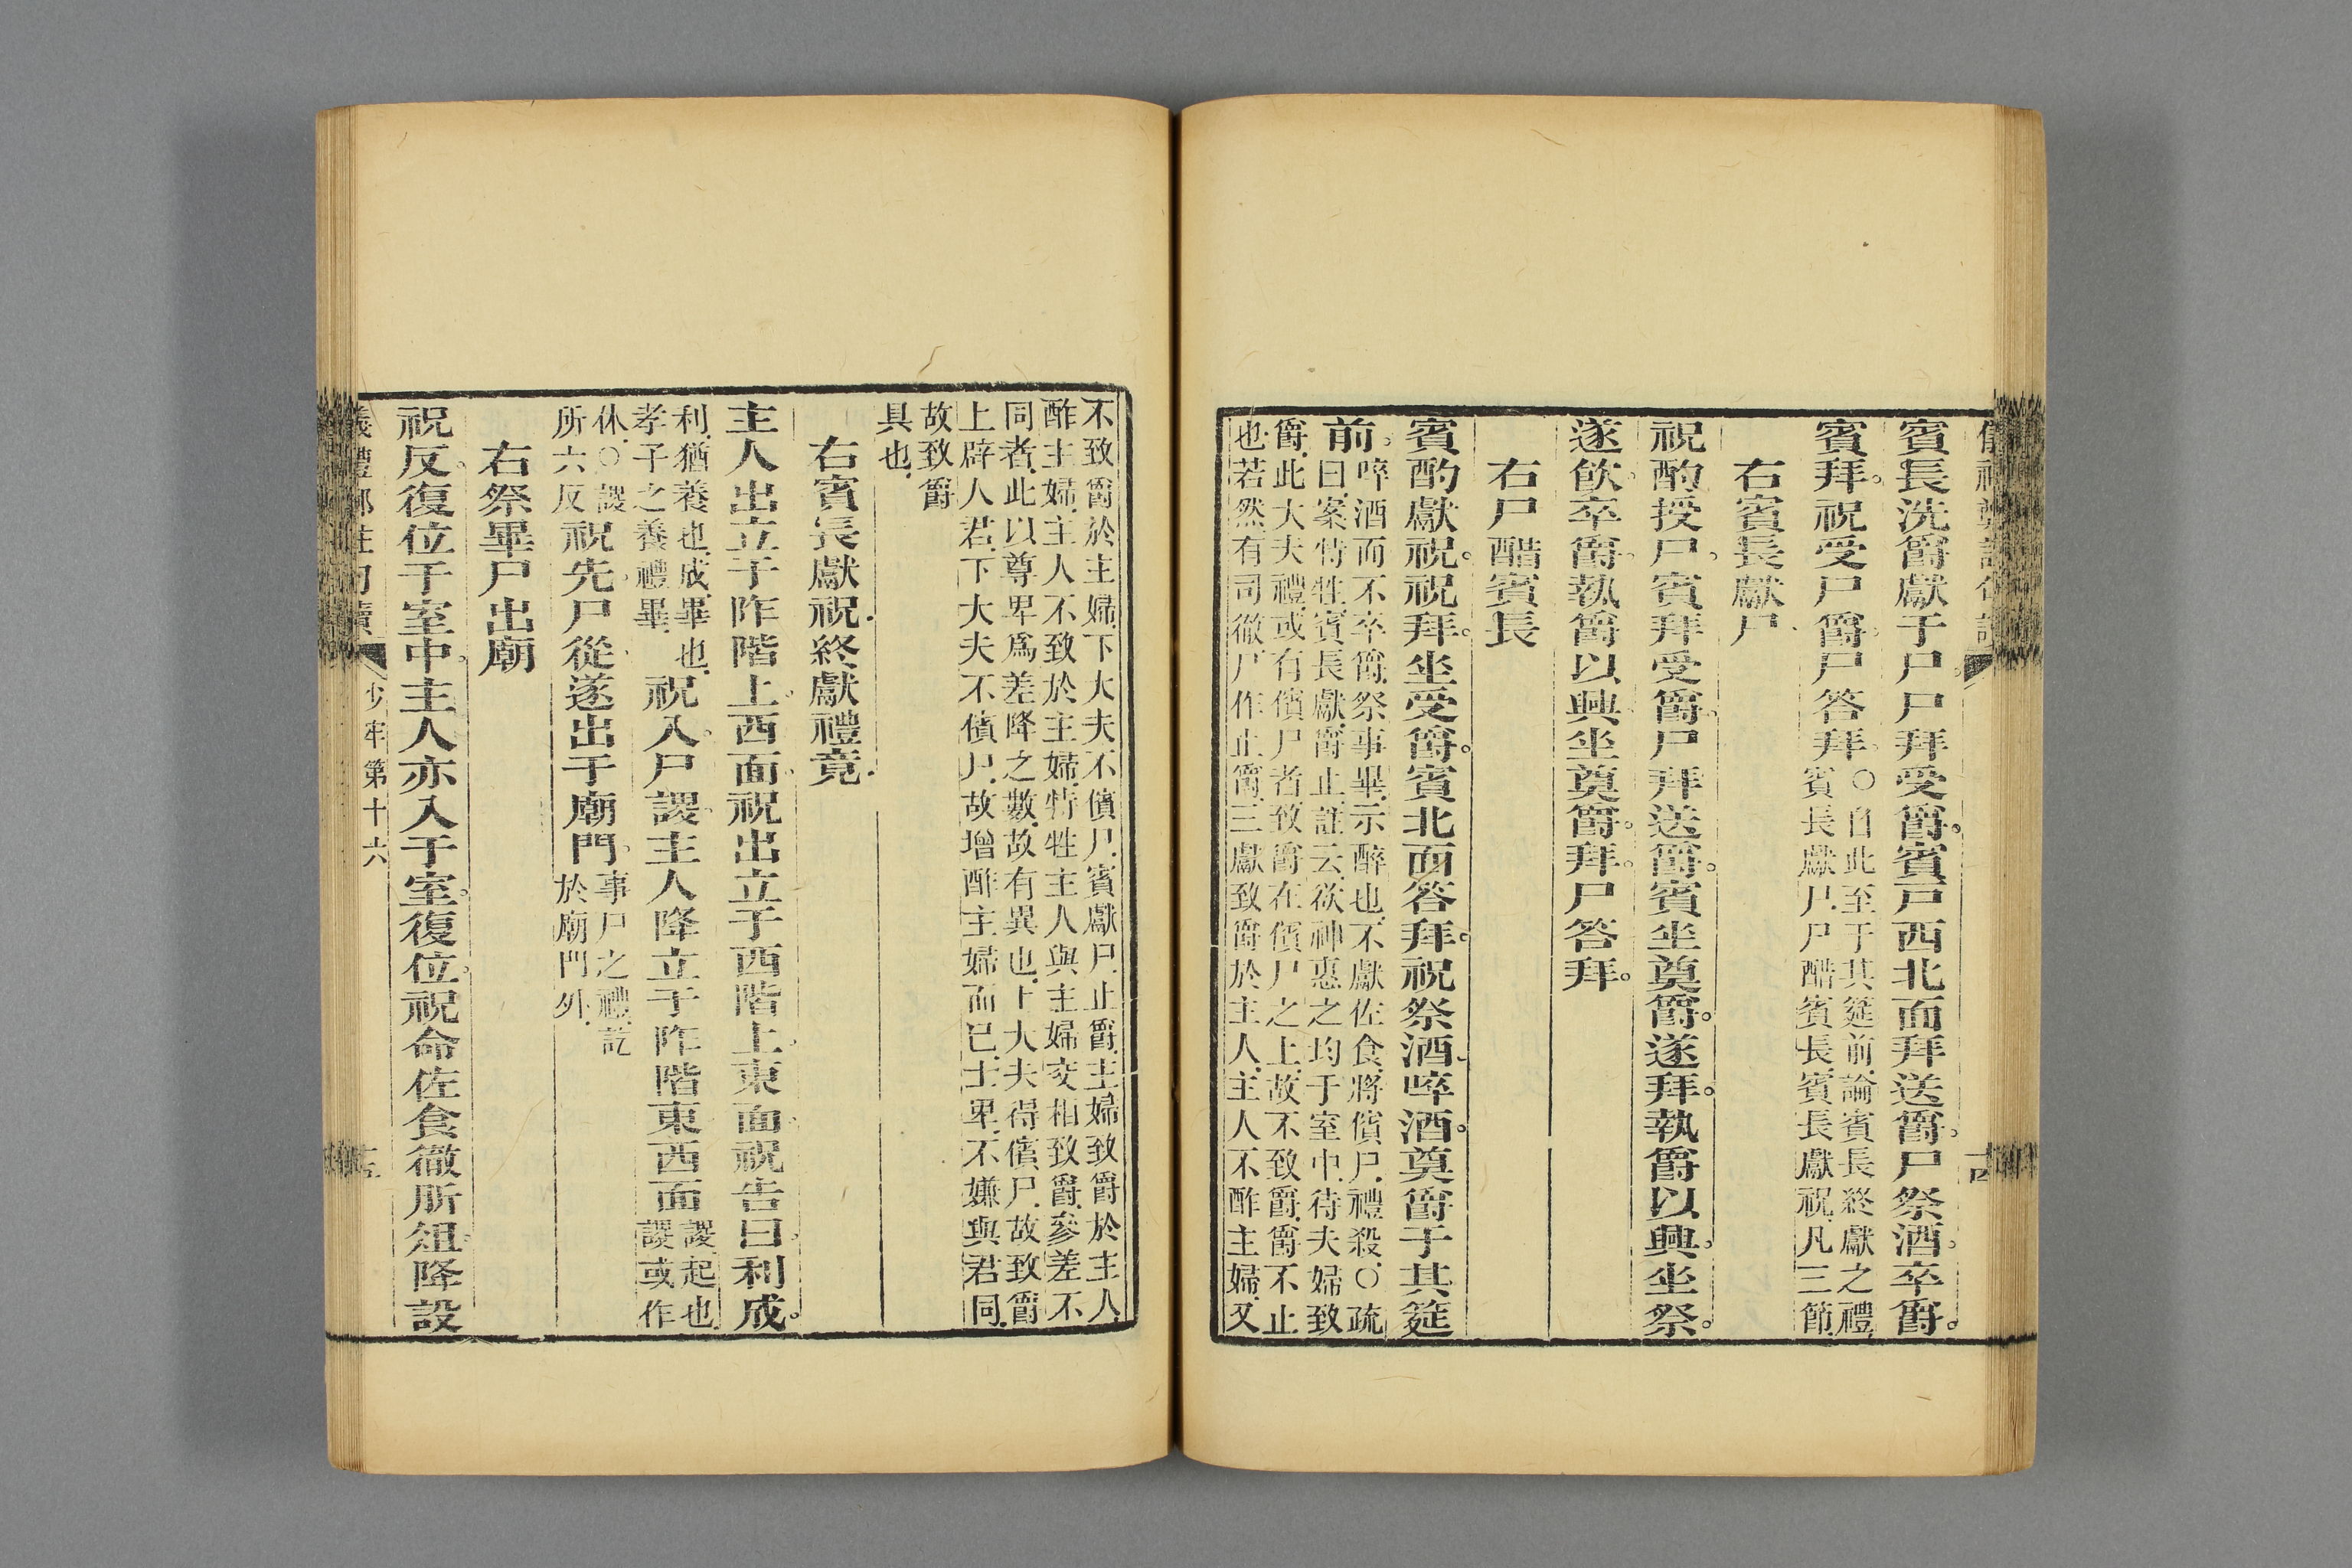 賓長洗爵獻于尸尸拜受爵。賓戸西北面拜送爵。尸祭酒。卒爵。
賓拜。祝受尸爵。尸答拜。
○自此至于其筵前論賓長終獻之禮
賓長獻尸尸醋賓長賓長獻祝凡三節
右賓長獻尸
祝酌授尸。賓拜受爵。尸拜送爵。賓坐奠爵。遂拜。執爵以興。坐祭。
遂飲。卒爵。執爵以興。坐奠爵。拜。尸答拜。
右尸醋賓長
賓酌獻祝。祝拜。坐受爵。賓北面答拜。祝祭酒。啐酒。奠爵于其筵
前。
啐酒而不卒爵祭事畢示醉也不獻佐食將儐尸禮殺○疏
曰案特牲賓長獻爵止註云欲神惠之均于室中待夫婦致
爵此大夫禮或有儐尸者致爵在儐尸之上故不致爵爵不止
也若然有司徹尸作止爵三獻致爵於主人主人不酢主婦又
不致爵於主婦下大夫不儐尸賓獻尸止爵主婦致爵於主人
酢主婦主人不致於主婦特牲主人與主婦交相致爵參差不
同者此以尊卑爲差降之數故有異也上大夫得儐尸故致爵
上辟人君下大夫不儐尸故增酢主婦而已士卑不嫌與君同
故致爵
具也
右賓長獻祝終獻禮竟
主人出立于阼階上。西面。祝出立于西階上。東面。祝告曰。利成。
利猶養也成畢也
孝子之養禮畢
祝入。尸謖。主人降立于阼階東西面
謖起也
謖或作
休○謖
所六反
祝先尸從遂出于廟門。
事尸之禮訖
於廟門外
右祭畢尸出廟
祝反。復位于室中。主人亦入于室。復位。祝命佐食徹肵俎。降設
少牢第十六